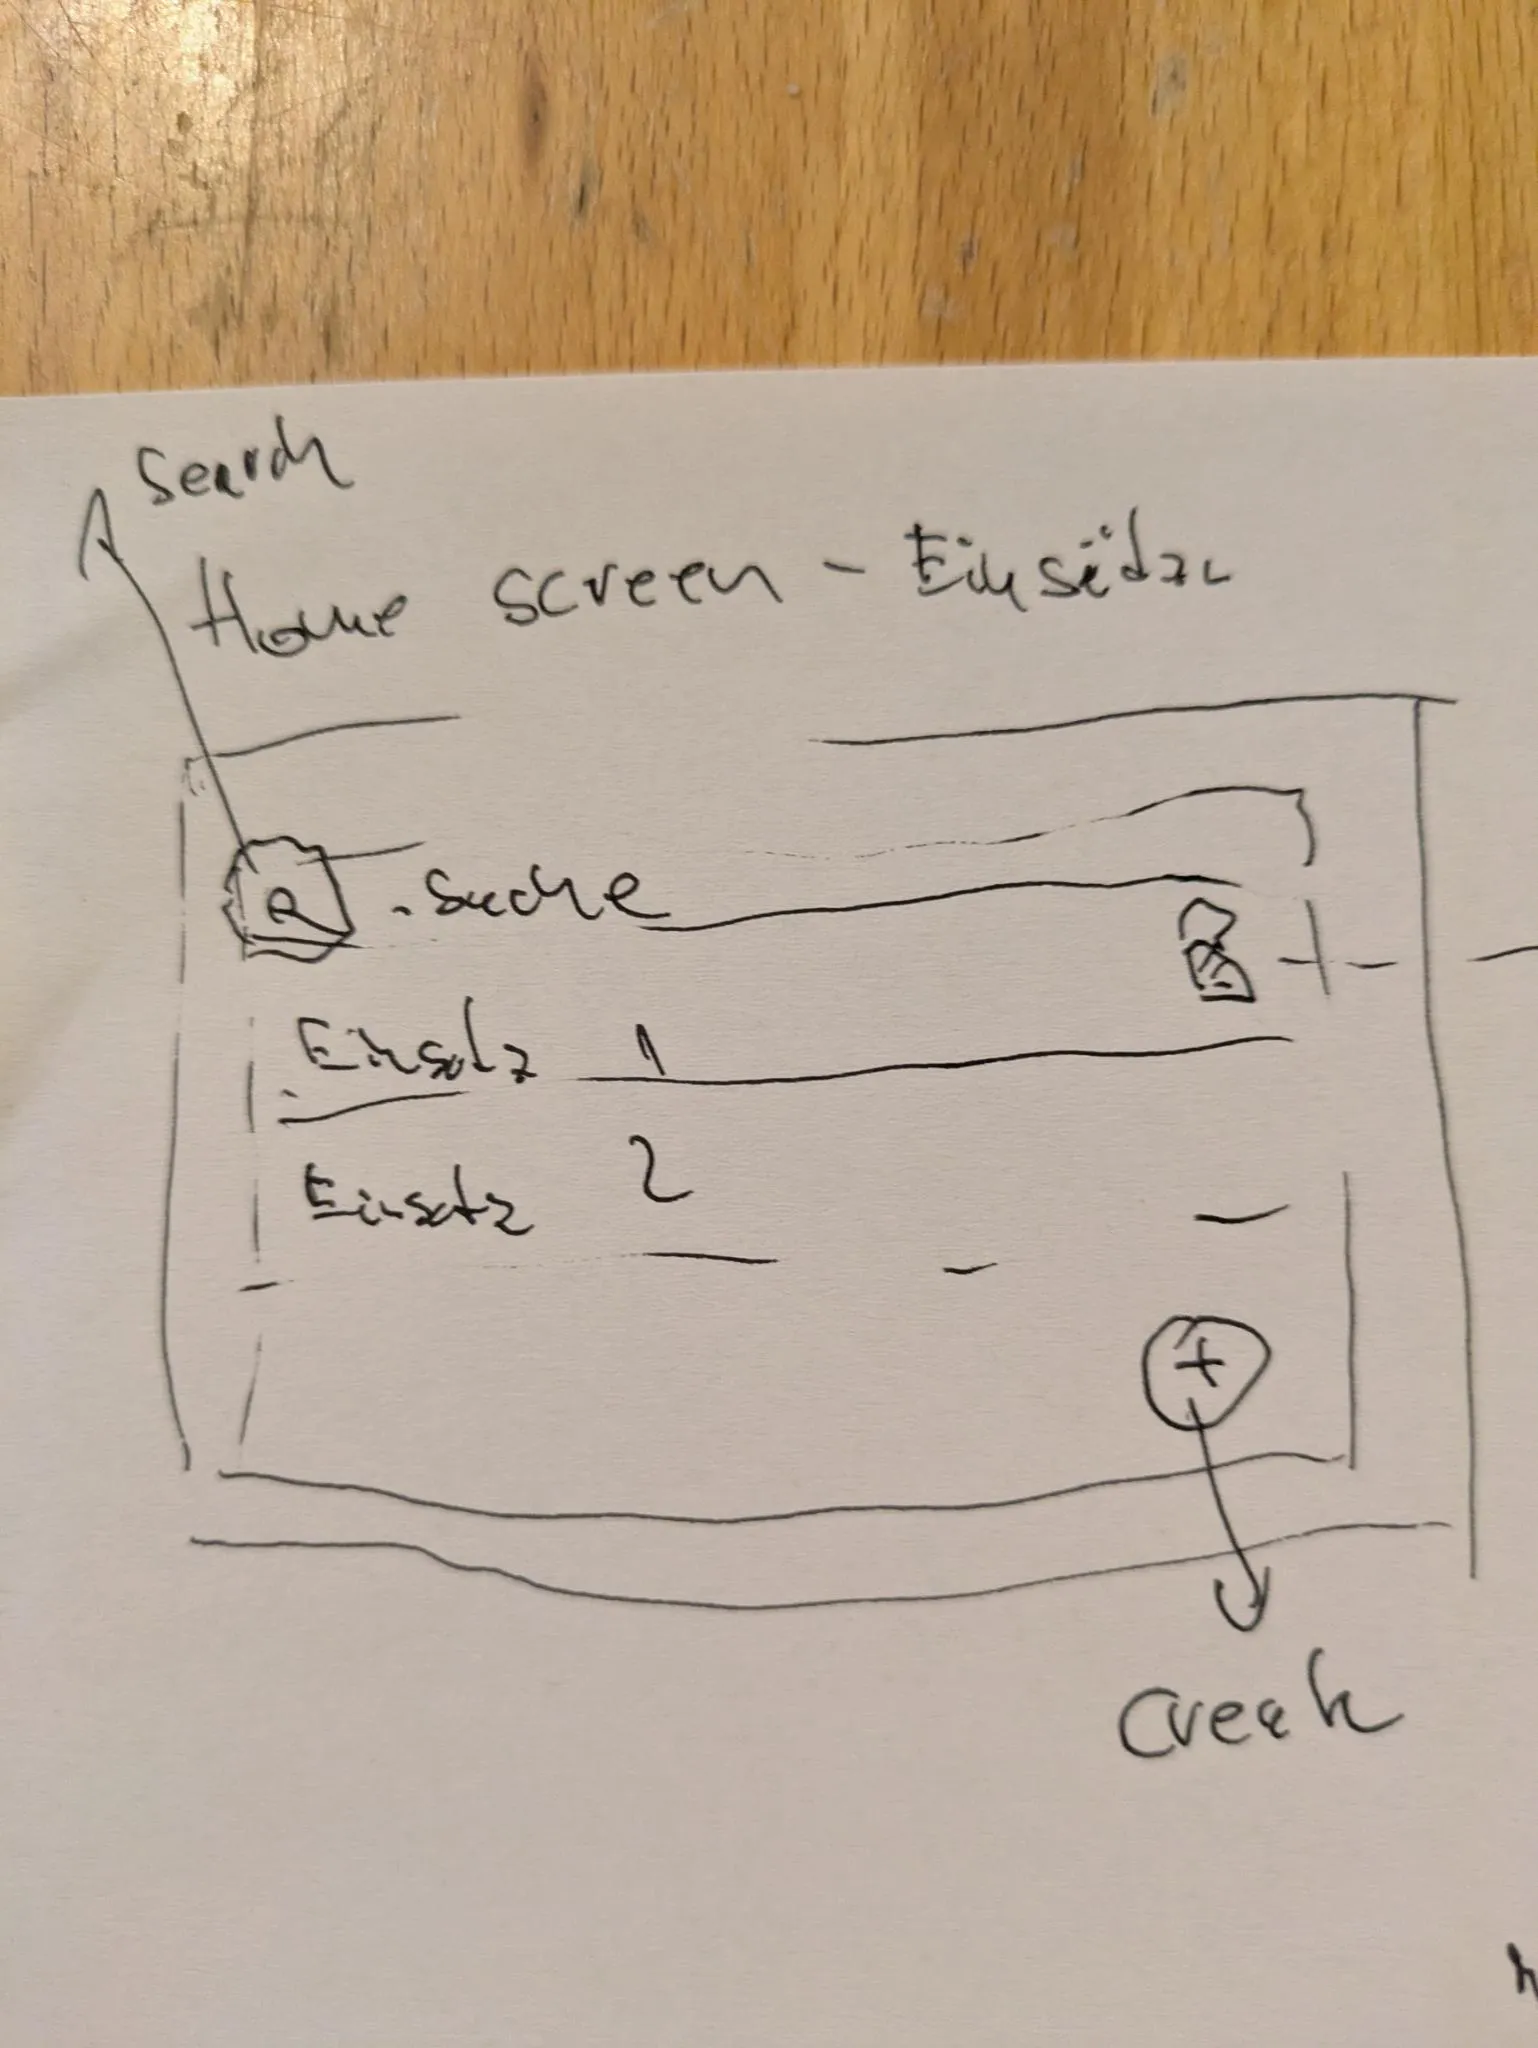 Search
Home screen - Einsätze
Suche
Einsatz 1
Einsatz 2
+
Create